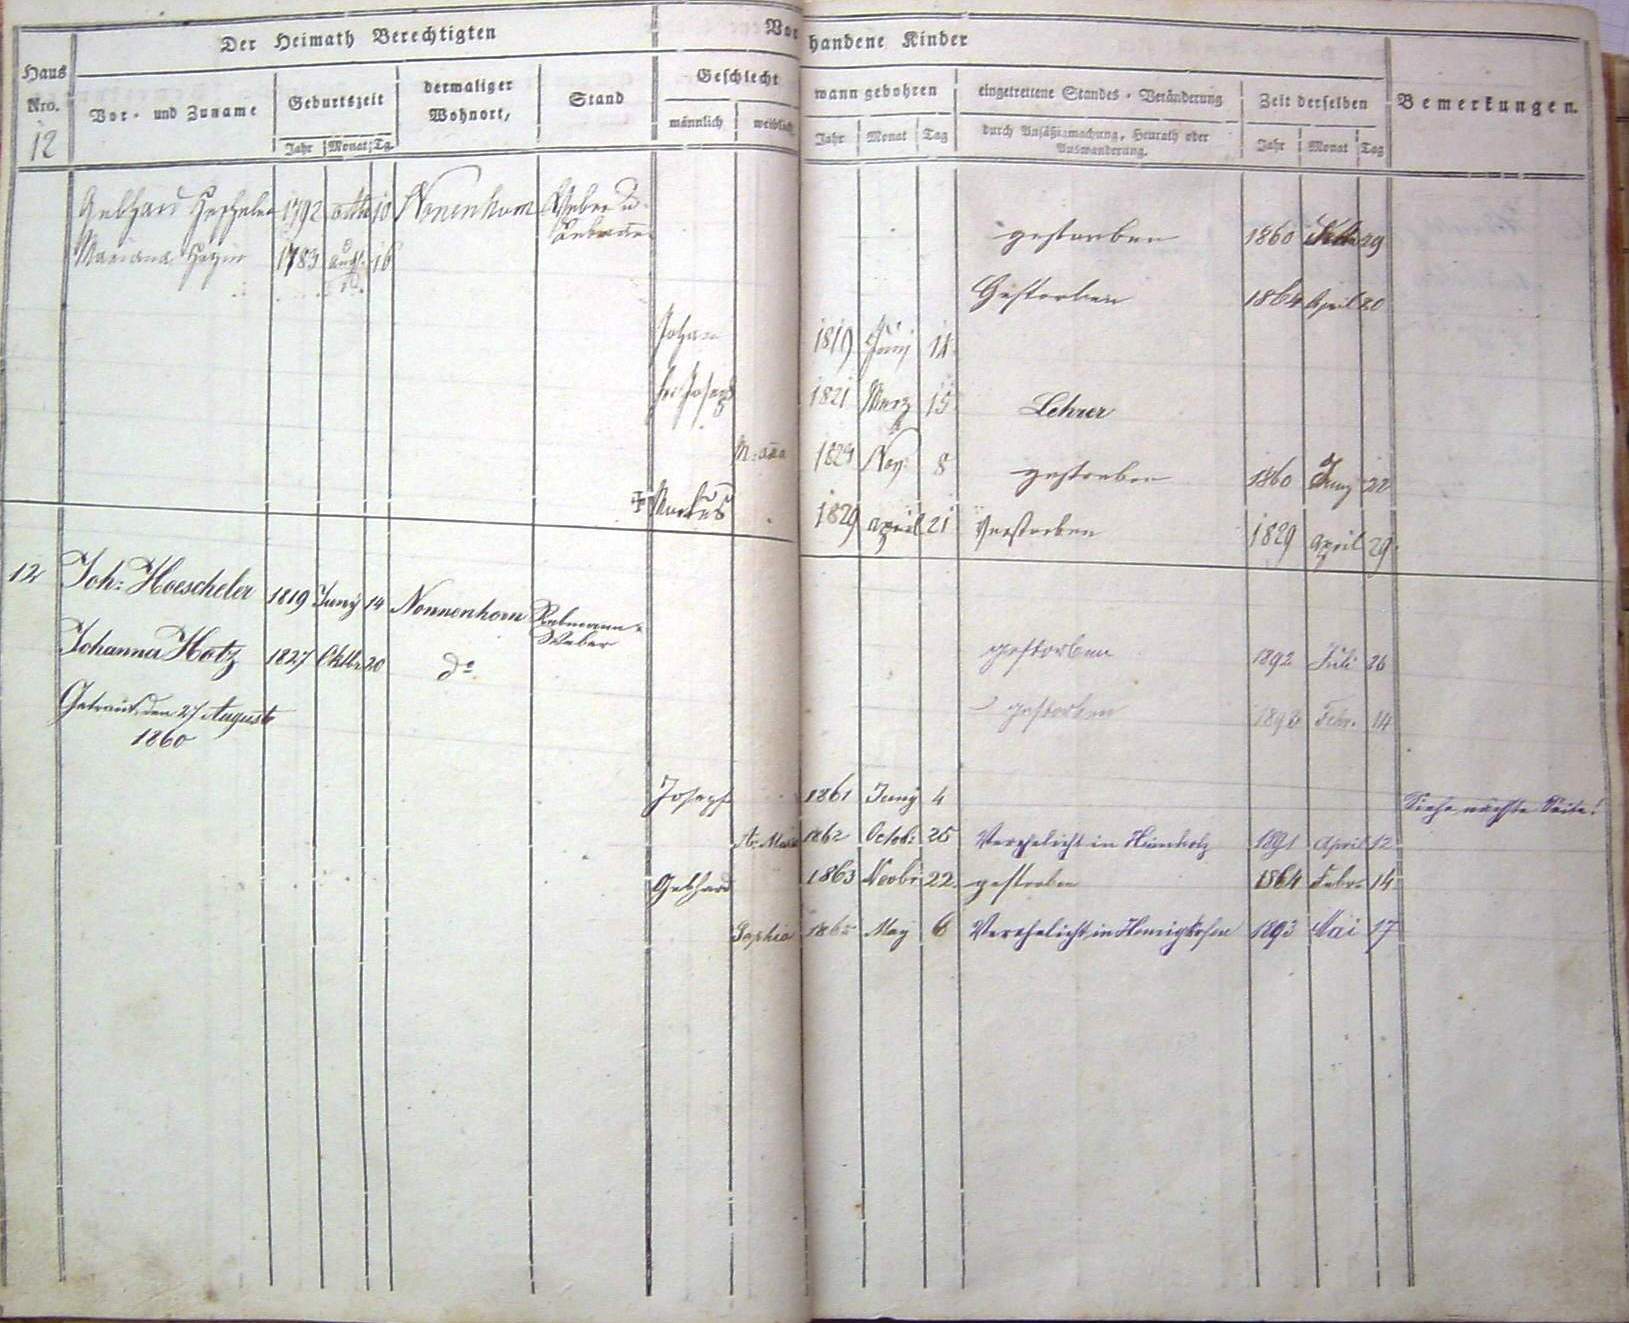 Der Heimath Berechtigten
Vorhandene Kinder
Haus Nro.
Vor- und Zuname
Geburtszeit
dermaliger Wohnort,
Stand
Geschlecht
wann gebohren
eingetrettene Standes-Veränderung
Zeit derselben
Bemerkungen.
Jahr Monat Tg.
männlich weiblich
Jahr Monat Tag
durch Ansäßigmachung, Heurath oder Auswanderung.
Jahr Monat Tag
12
Gebhard 1792 10 Nonenhorn Weber u.
gestorben 1860 29
Mariana 1783 Augst 16
Gestorben 1864 April 20
Johan 1819 Junj 14
Joseph 1821 Merz 15 Lehrer
M:ana 1824 Nov: 8 gestorben 1860 Juny 22
Markus 1829 April 21 Verstorben 1829 April 29
12 Joh: Hoescheler 1819 Juny 14 Nonnenhorn Rebmann u. Weber
gestorben 1892 Juli 26
Johanna Hotz 1827 Oktbr 20 do
gestorben Febr. 14
Getraut den 27 Auguste
1860
Joseph 1861 Juny 4 Siehe nächste Seite!
A. Maria 1862 Octob: 25 Verehelicht in 1891 April 12
Gebhard 1863 Novbr 22 gestorben 1864 Febr. 14
Sophia 1865 May 6 Verehelicht in Hemigkofen 1893 Mai 17